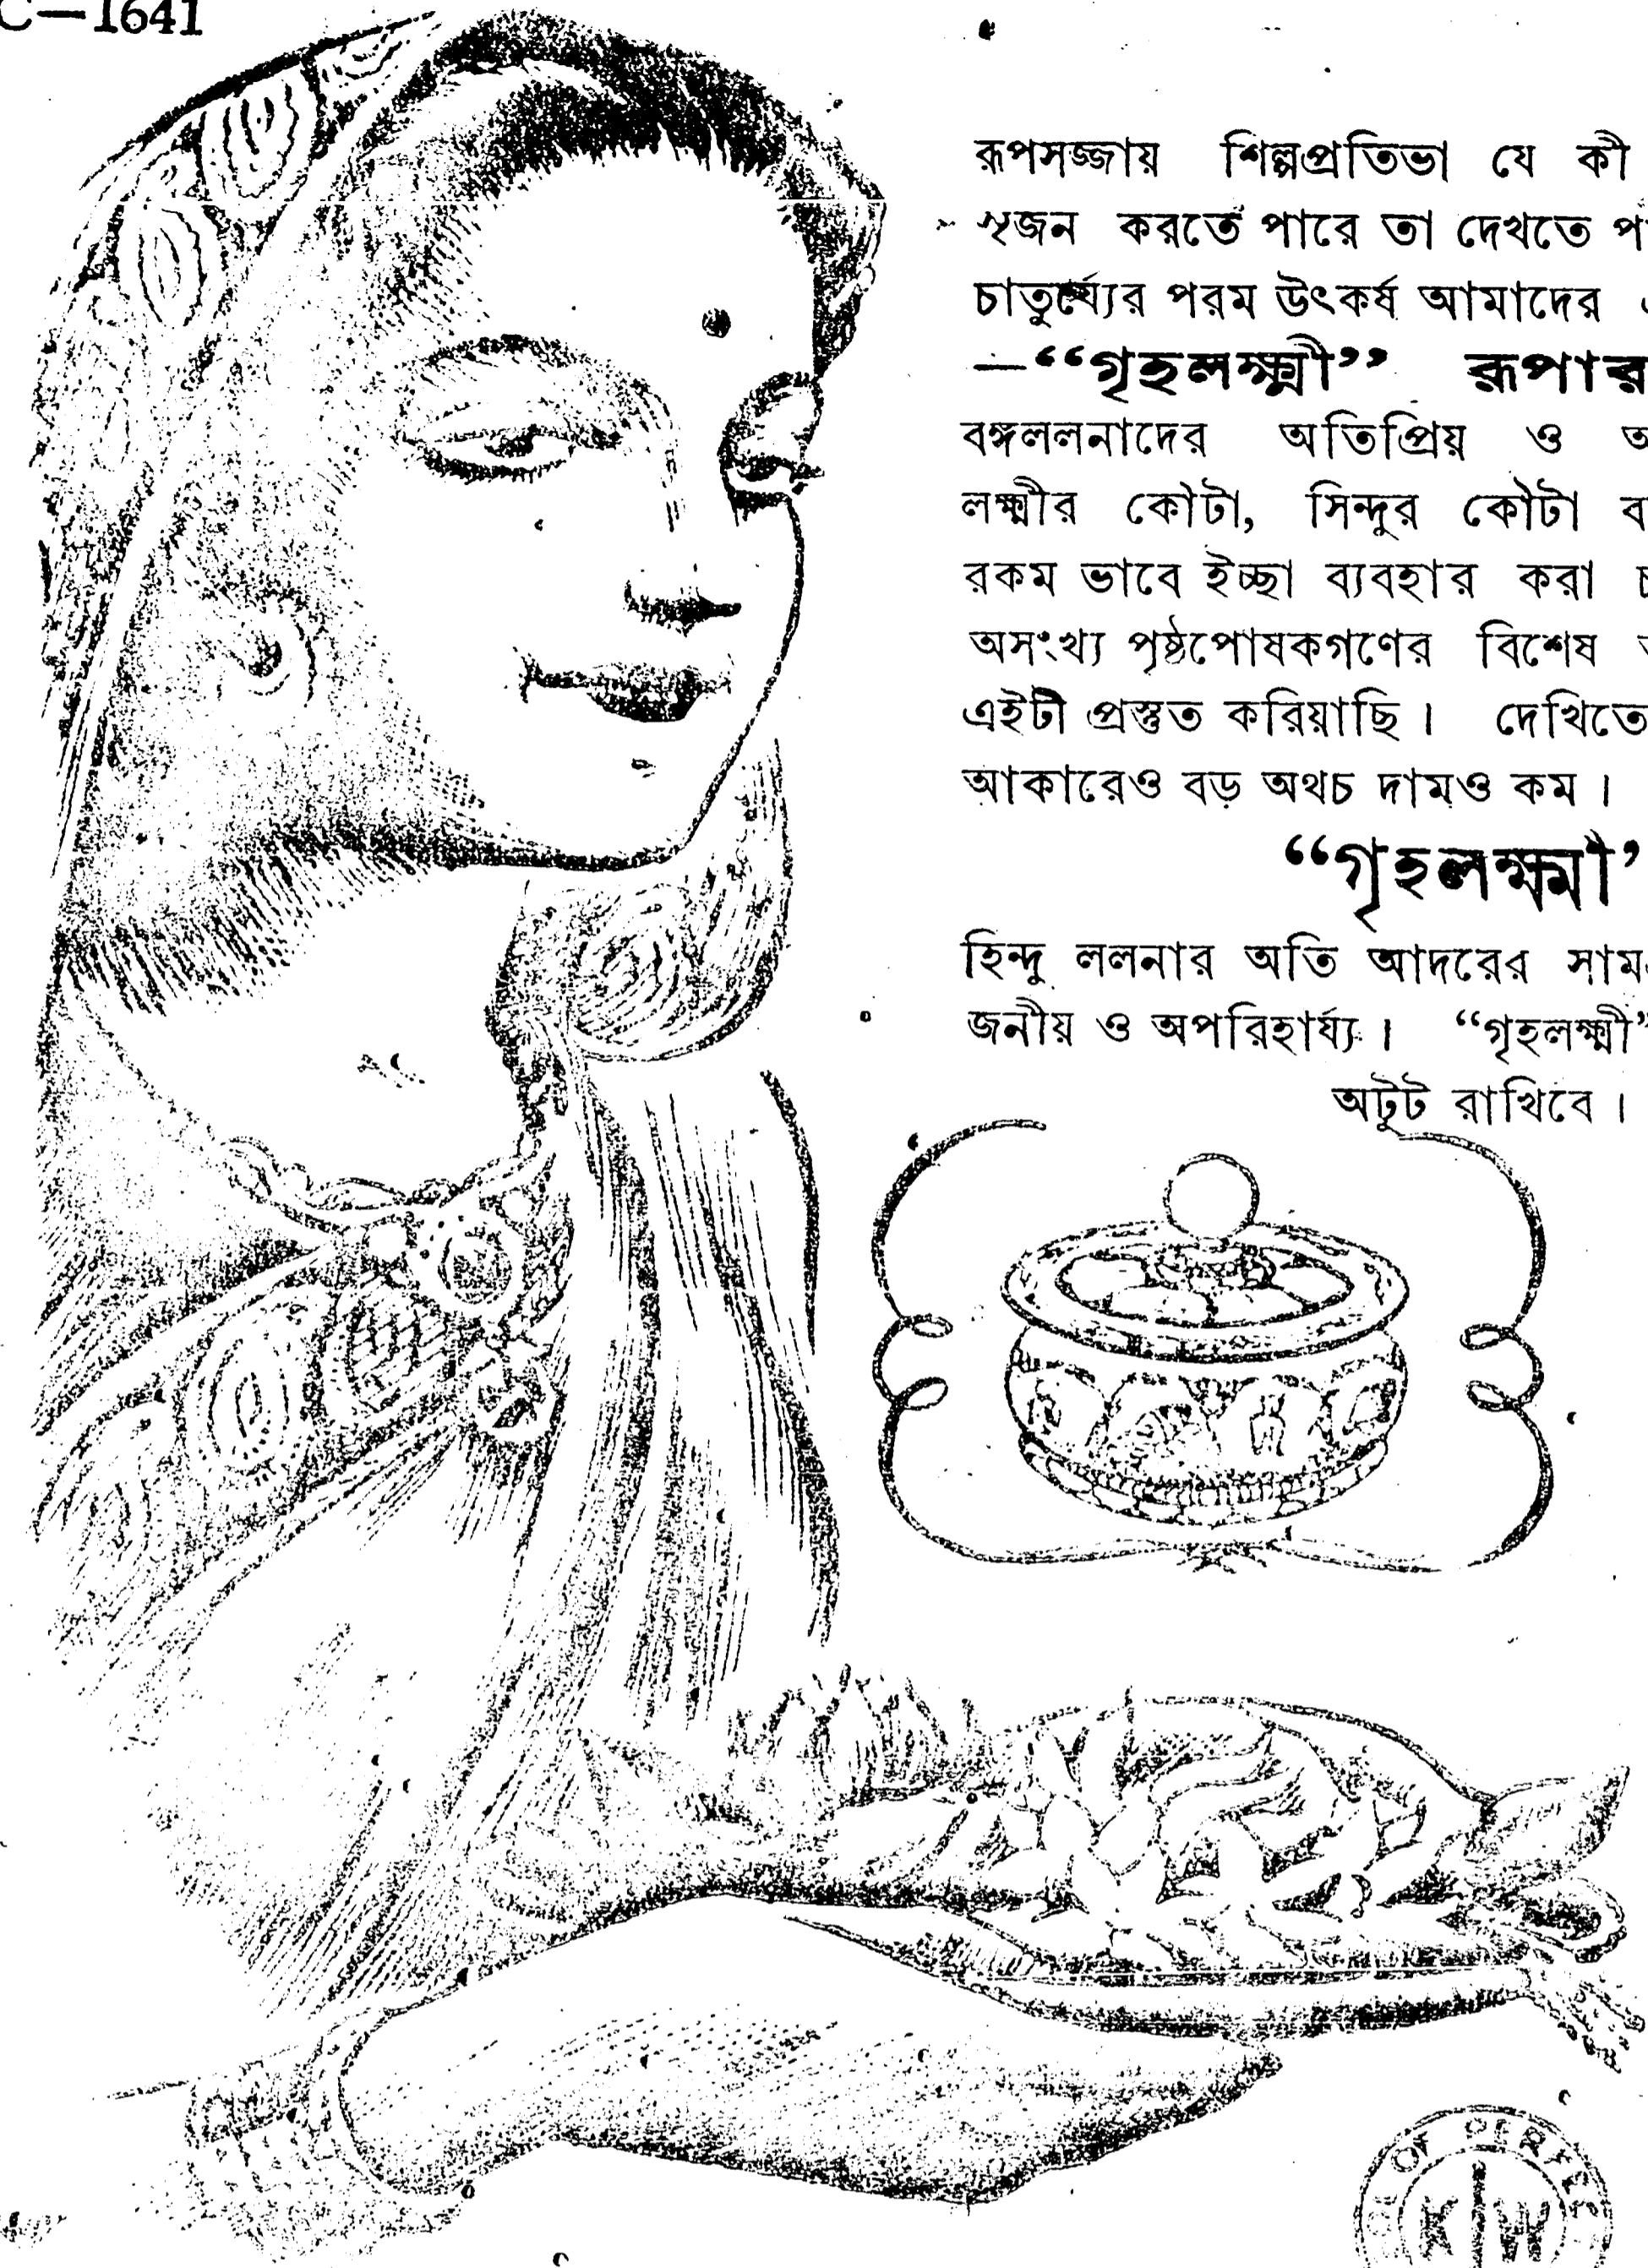 C—1641
রূপসজ্জায় শিল্পপ্রতিভা যে কী
সৃজন করতে পারে তা দেখতে
চাতুর্য্যের পরম উৎকর্ষ আমাদের
—“গৃহলক্ষ্মী” রূপার
বঙ্গললনাদের অতিপ্রিয় ও
লক্ষ্মীর কৌটা, সিন্দুর কৌটা
রকম ভাবে ইচ্ছা ব্যবহার করা
অসংখ্য পৃষ্ঠপোষকগণের বিশেষ
এইটী প্রস্তুত করিয়াছি। দেখিতে
আকারেও বড় অথচ দামও কম।
“গৃহলক্ষ্মী”
হিন্দু ললনার অতি আদরের
জনীয় ও অপরিহার্য্য। “গৃহলক্ষ্মী”
অটুট রাখিবে।
OF
KW